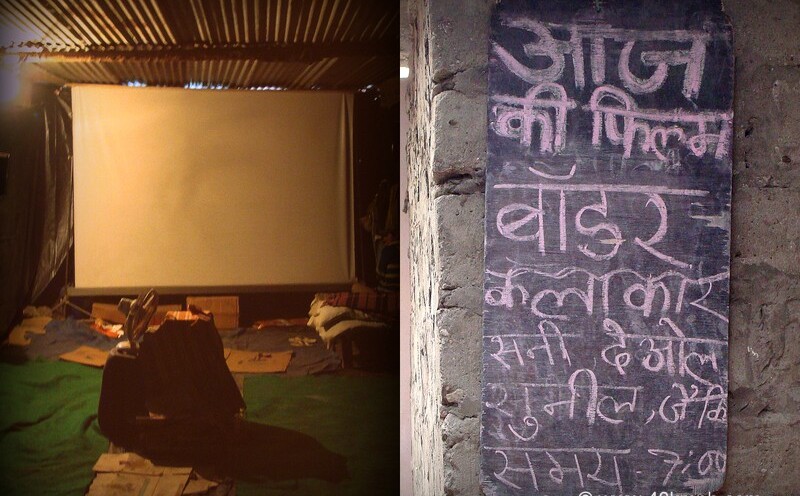 आज
की फिल्म
बॉडर
कलाकार
सनी देओल
सुनील, जैकि
समय - 7:00